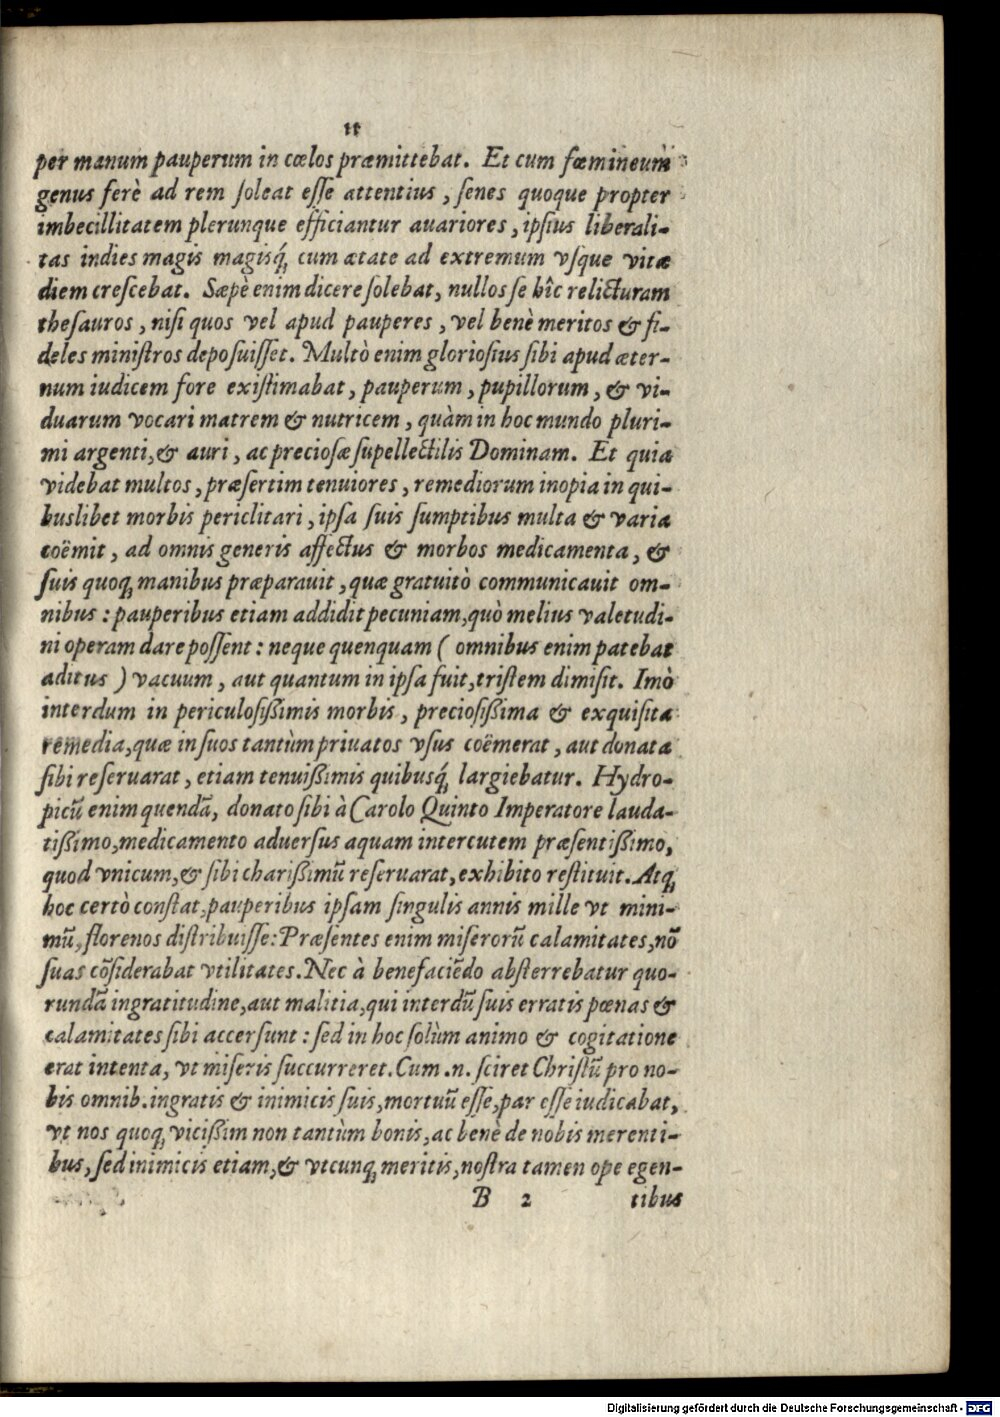 11
per manum pauperum in cœlos præmittebat. Et cum fœmineum
genus ferè ad rem ſoleat eſſe attentius, ſenes quoque propter
imbecillitatem plerunque efficiantur auariores, ipſius liberali-
tas indies magis magisq́; cum ætate ad extremum vſque vitæ
diem creſcebat. Sæpè enim dicere ſolebat, nullos ſe hîc relicturam
theſauros, niſi quos vel apud pauperes, vel benè meritos & fi-
deles miniſtros depoſuiſſet. Multò enim glorioſius ſibi apud æter-
num iudicem fore exiſtimabat, pauperum, pupillorum, & vi-
duarum vocari matrem & nutricem, quàm in hoc mundo pluri-
mi argenti, & auri, ac precioſæ ſupellectilis Dominam. Et quia
videbat multos, præſertim tenuiores, remediorum inopia in qui-
buslibet morbis periclitari, ipſa ſuis ſumptibus multa & varia
coëmit, ad omnis generis affectus & morbos medicamenta, &
ſuis quoq; manibus præparauit, quæ gratuitò communicauit om-
nibus: pauperibus etiam addidit pecuniam, quò melius valetudi-
ni operam dare poſſent: neque quenquam ( omnibus enim patebat
aditus ) vacuum, aut quantum in ipſa fuit, triſtem dimiſit. Imò
interdum in periculoſißimis morbis, precioſißima & exquiſita
remedia, quæ in ſuos tantùm priuatos vſus coëmerat, aut donata
ſibi reſeruarat, etiam tenuißimis quibusq́; largiebatur. Hydro-
picũ enim quendã, donato ſibi à Carolo Quinto Imperatore lauda-
tißimo, medicamento aduerſus aquam intercutem præſentißimo,
quod vnicum, & ſibi charißimũ reſeruarat, exhibito reſtituit. Atq;
hoc certò conſtat, pauperibus ipſam ſingulis annis mille vt mini-
mũ, florenos diſtribuiſſe: Præſentes enim miſerorũ calamitates, nõ
ſuas cõſiderabat vtilitates. Nec à benefaciẽdo abſterrebatur quo-
rundã ingratitudine, aut malitia, qui interdũ ſuis erratis pœnas &
calamitates ſibi accerſunt: ſed in hoc ſolùm animo & cogitatione
erat intenta, vt miſeris ſuccurreret. Cum .n. ſciret Chriſtũ pro no-
bis omnib. ingratis & inimicis ſuis, mortuũ eſſe, par eſſe iudicabat,
vt nos quoq; vicißim non tantùm bonis, ac benè de nobis merenti-
bus, ſed inimicis etiam, & vtcunq; meritis, noſtra tamen ope egen-
B 2 tibus
Digitalisierung gefördert durch die Deutsche Forschungsgemeinschaft - DFG